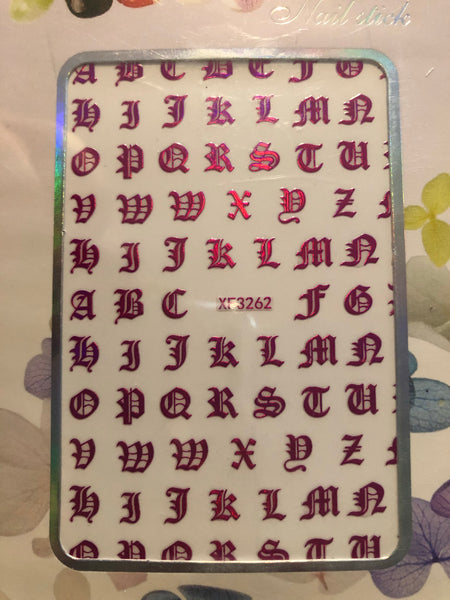 Nail stick
A B C D E F G
H I J K L M N
O P Q R S T U
V W W X Y Z
H I J K L M N
A B C XF3262 F G
H I J K L M N
O P Q R S T U
V W W X Y Z
H I J K L M N
O P Q R S T U